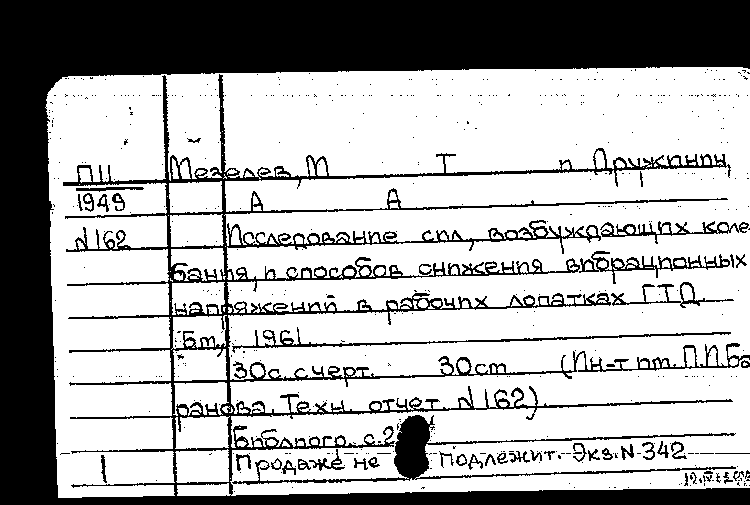 ПII Мезелев, М Т и Дружинин,
1949 А А
N162 Исследование сил, возбуждающих коле
бания, и способов снижения вибрационных
напряжений в рабочих лопатках ГТД
Бт, 1961
30с. с черт. 30см (Ин-т им. П.И.Ба
ранова. Техн. отчет. N162).
Библиогр. с.2
1 Продаже не подлежит. Экз. N 342